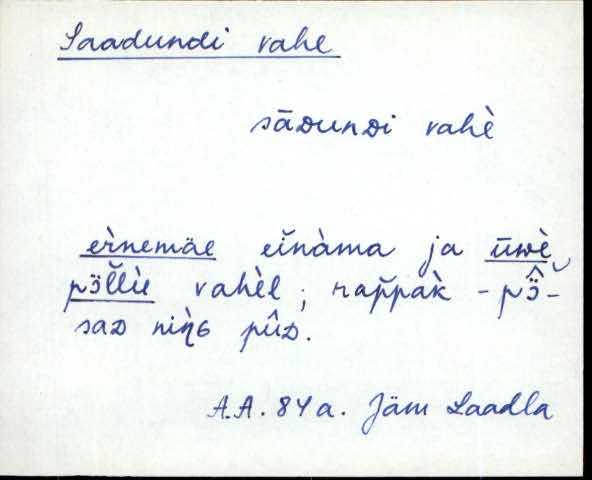 Saadundi vahe
sāᴅunᴅi vahè
eŕnemäe eĭnàma ja ūwè
pɔ̈̆lliè vahèl; rap̆pak̀ - pɔ̈̂-
saᴅ niǹɢ pûᴅ.
A.A. 84 a. Jäm Laadla